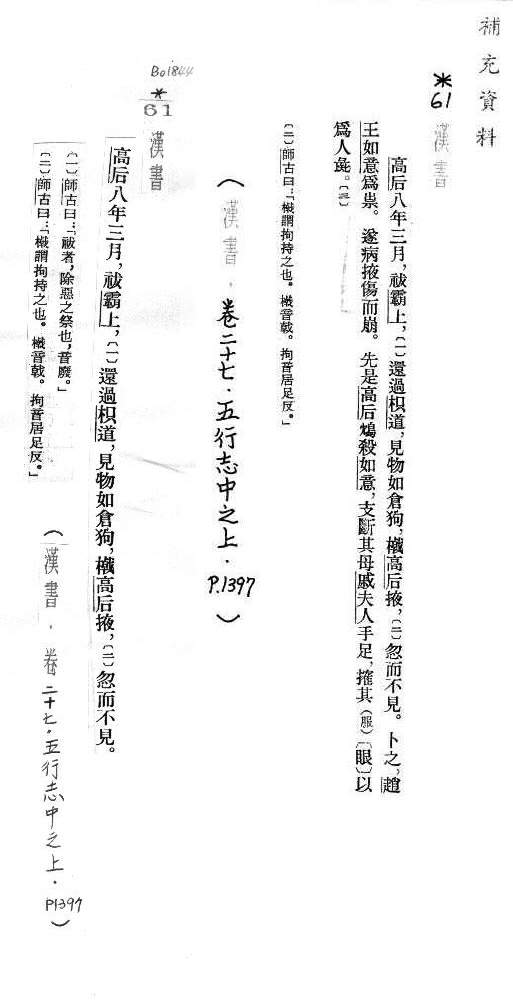 補充資料
*61
漢書
高后八年三月，祓霸上，〔一〕還過枳道，見物如倉狗，橶高后掖，〔二〕忽而不見。卜之，趙
王如意爲祟。遂病掖傷而崩。先是高后鴆殺如意，支斷其母戚夫人手足，搉其（服）〔眼〕以
爲人彘。〔三〕
〔二〕師古曰：「橶謂拘持之也。橶音戟。拘音居足反。」
（漢書．卷二十七．五行志中之上．P.1397）
B01844
*61
漢書
高后八年三月，祓霸上，〔一〕還過枳道，見物如倉狗，橶高后掖，〔二〕忽而不見。
〔一〕師古曰：「祓者，除惡之祭也，音廢。」
〔二〕師古曰：「橶謂拘持之也。橶音戟。拘音居足反。」
（漢書．卷二十七．五行志中之上．P1397）